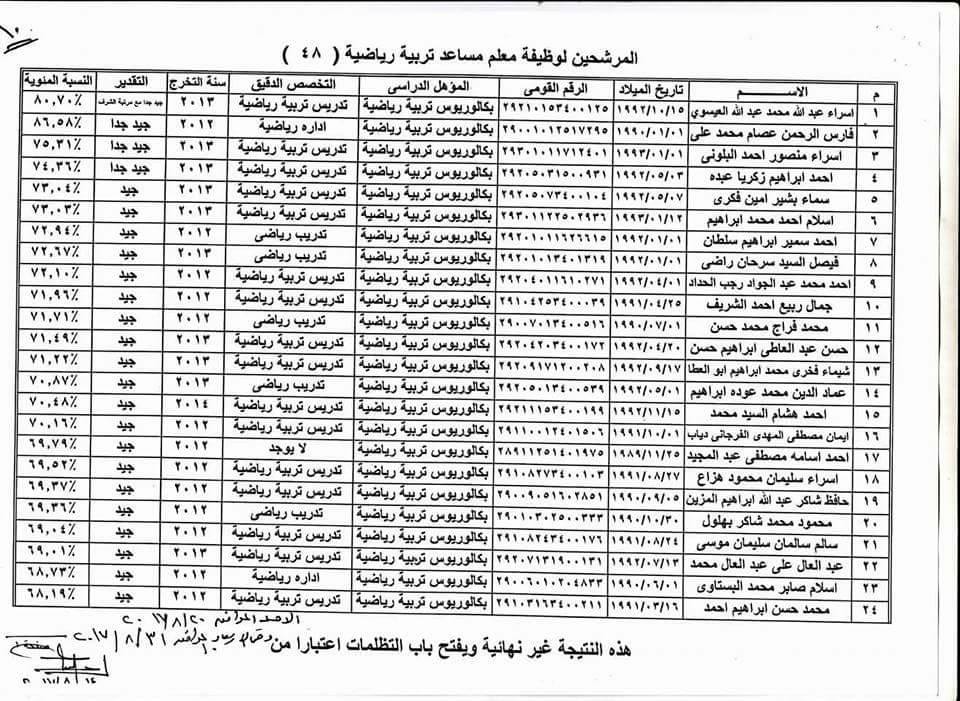 المرشحين لوظيفة معلم مساعد تربية رياضية ( ٤٨ )
م الاســـــم تاريخ الميلاد الرقم القومى المؤهل الدراسى التخصص الدقيق سنة التخرج التقدير النسبة المئوية
١ اسراء عبد الله محمد عبد الله العيسوي ١٩٩٢/١٠/١٥ ٢٩٢١٠١٥٣٤٠٠١٢٥ بكالوريوس تربية رياضية تدريس تربية رياضية ٢٠١٣ جيد جدا مع مرتبة الشرف ٨٠,٧٠٪
٢ فارس الرحمن عصام محمد على ١٩٩٠/٠١/٠١ ٢٩٠٠١٠١٢٥١٧٢٩٥ بكالوريوس تربية رياضية اداره رياضية ٢٠١٢ جيد جدا ٨٦,٥٨٪
٣ اسراء منصور احمد البلونى ١٩٩٣/٠١/٠١ ٢٩٣٠١٠١١٧١٢٤٠١ بكالوريوس تربية رياضية تدريس تربية رياضية ٢٠١٣ جيد جدا ٧٥,٣١٪
٤ احمد ابراهيم زكريا عبده ١٩٩٢/٠٥/٠٣ ٢٩٢٠٥٠٣١٥٠٠٩٣١ بكالوريوس تربية رياضية تدريس تربية رياضية ٢٠١٣ جيد جدا ٧٤,٣٦٪
٥ سماء بشير امين فكرى ١٩٩٢/٠٥/٠٧ ٢٩٢٠٥٠٧٣٤٠٠١٠٤ بكالوريوس تربية رياضية تدريس تربية رياضية ٢٠١٣ جيد ٧٣,٠٤٪
٦ اسلام احمد محمد ابراهيم ١٩٩٣/٠١/١٢ ٢٩٣٠١١٢٢٥٠٢٩٣٦ بكالوريوس تربية رياضية تدريس تربية رياضية ٢٠١٣ جيد ٧٣,٠٣٪
٧ احمد سمير ابراهيم سلطان ١٩٩٢/٠١/٠١ ٢٩٢٠١٠١١٦٢٦٦١٥ بكالوريوس تربية رياضية تدريب رياضى ٢٠١٢ جيد ٧٢,٩٤٪
٨ فيصل السيد سرحان راضى ١٩٩٢/٠١/٠١ ٢٩٢٠١٠١٣٤٠١٣١٩ بكالوريوس تربية رياضية تدريب رياضى ٢٠١٣ جيد ٧٢,٦٧٪
٩ احمد محمد عبد الجواد رجب الحداد ١٩٩٢/٠٤/٠١ ٢٩٢٠٤٠١١٦١٠٢٧١ بكالوريوس تربية رياضية تدريس تربية رياضية ٢٠١٢ جيد ٧٢,١٠٪
١٠ جمال ربيع احمد الشريف ١٩٩١/٠٤/٢٥ ٢٩١٠٤٢٥٣٤٠٠٠٣٩ بكالوريوس تربية رياضية تدريس تربية رياضية ٢٠١٢ جيد ٧١,٩٦٪
١١ محمد فراج محمد حسن ١٩٩٠/٠٧/٠١ ٢٩٠٠٧٠١٣٤٠٠٥١٦ بكالوريوس تربية رياضية تدريب رياضى ٢٠١٢ جيد ٧١,٧١٪
١٢ حسن عبد العاطى ابراهيم حسن ١٩٩٢/٠٤/٢٠ ٢٩٢٠٤٢٠٣٤٠٠١٧٢ بكالوريوس تربية رياضية تدريس تربية رياضية ٢٠١٣ جيد ٧١,٤٩٪
١٣ شيماء فخرى محمد ابراهيم ابو العطا ١٩٩٢/٠٩/١٧ ٢٩٢٠٩١٧١٢٠٠٢٠٨ بكالوريوس تربية رياضية تدريس تربية رياضية ٢٠١٣ جيد ٧١,٢٢٪
١٤ عماد الدين محمد عوده ابراهيم ١٩٩٢/٠٥/٠١ ٢٩٢٠٥٠١٣٤٠٠٥٣٩ بكالوريوس تربية رياضية تدريب رياضى ٢٠١٣ جيد ٧٠,٨٧٪
١٥ احمد هشام السيد محمد ١٩٩٢/١١/١٥ ٢٩٢١١١٥٣٤٠٠١٩٩ بكالوريوس تربية رياضية تدريس تربية رياضية ٢٠١٤ جيد ٧٠,٤٨٪
١٦ ايمان مصطفى المهدى الفرجانى دياب ١٩٩١/١٠/٠١ ٢٩١١٠٠١٢٤٠١٥٠٦ بكالوريوس تربية رياضية تدريس تربية رياضية ٢٠١٢ جيد ٧٠,١٦٪
١٧ احمد اسامه مصطفى عبد المجيد ١٩٨٩/١١/٢٥ ٢٨٩١١٢٥١٤٠١٩٧٥ بكالوريوس تربية رياضية لا يوجد ٢٠١٢ جيد ٦٩,٧٩٪
١٨ اسراء سليمان محمود هزاع ١٩٩١/٠٨/٢٧ ٢٩١٠٨٢٧٣٤٠٠١٠٣ بكالوريوس تربية رياضية تدريس تربية رياضية ٢٠١٢ جيد ٦٩,٥٢٪
١٩ حافظ شاكر عبد الله ابراهيم المزين ١٩٩٠/٠٩/٠٥ ٢٩٠٠٩٠٥١٦٠٢٨٥١ بكالوريوس تربية رياضية تدريس تربية رياضية ٢٠١٢ جيد ٦٩,٣٧٪
٢٠ محمود محمد شاكر بهلول ١٩٩٠/١٠/٣٠ ٢٩٠١٠٣٠٢٥٠٠٣٣٣ بكالوريوس تربية رياضية تدريب رياضى ٢٠١٢ جيد ٦٩,٣٦٪
٢١ سالم سالمان سليمان موسى ١٩٩١/٠٨/٢٤ ٢٩١٠٨٢٤٣٤٠٠١٧٦ بكالوريوس تربية رياضية تدريس تربية رياضية ٢٠١٢ جيد ٦٩,٠٤٪
٢٢ عبد العال على عبد العال محمد ١٩٩٢/٠٧/١٣ ٢٩٢٠٧١٣١٩٠٠١٣١ بكالوريوس تربية رياضية تدريس تربية رياضية ٢٠١٣ جيد ٦٩,٠١٪
٢٣ اسلام صابر محمد البستاوى ١٩٩٠/٠٦/٠١ ٢٩٠٠٦٠١٠٢٠٤٨٣٣ بكالوريوس تربية رياضية اداره رياضية ٢٠١٢ جيد ٦٨,٧٣٪
٢٤ محمد حسن ابراهيم احمد ١٩٩١/٠٣/١٦ ٢٩١٠٣١٦٣٤٠٠٢١١ بكالوريوس تربية رياضية تدريس تربية رياضية ٢٠١٢ جيد ٦٨,١٩٪
هذه النتيجة غير نهائية ويفتح باب التظلمات اعتبارا من